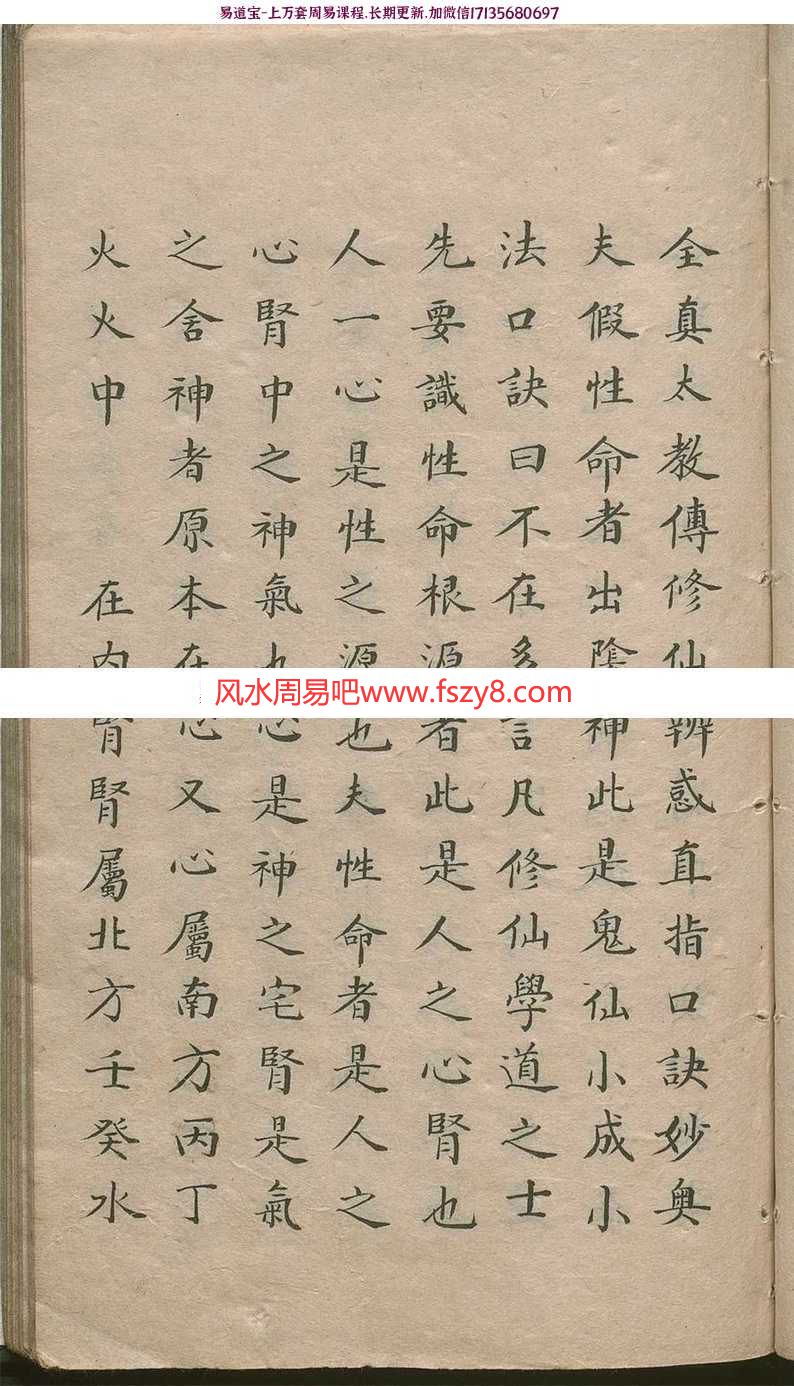 易道宝-上万套周易课程.长期更新.加微信17135680697
全真太教傳修仙辨惑直指口訣妙奧
夫假性命者出陰神此是鬼仙小成小
法口訣曰不在多言凡修仙學道之士
先要識性命根源者此是人之心腎也
人一心是性之源也夫性命者是人之
心腎中之神氣也心是神之宅腎是氣
之舍神者原本在心又心屬南方丙丁
火火中　在内腎腎屬北方壬癸水
风水周易吧www.fszy8.com